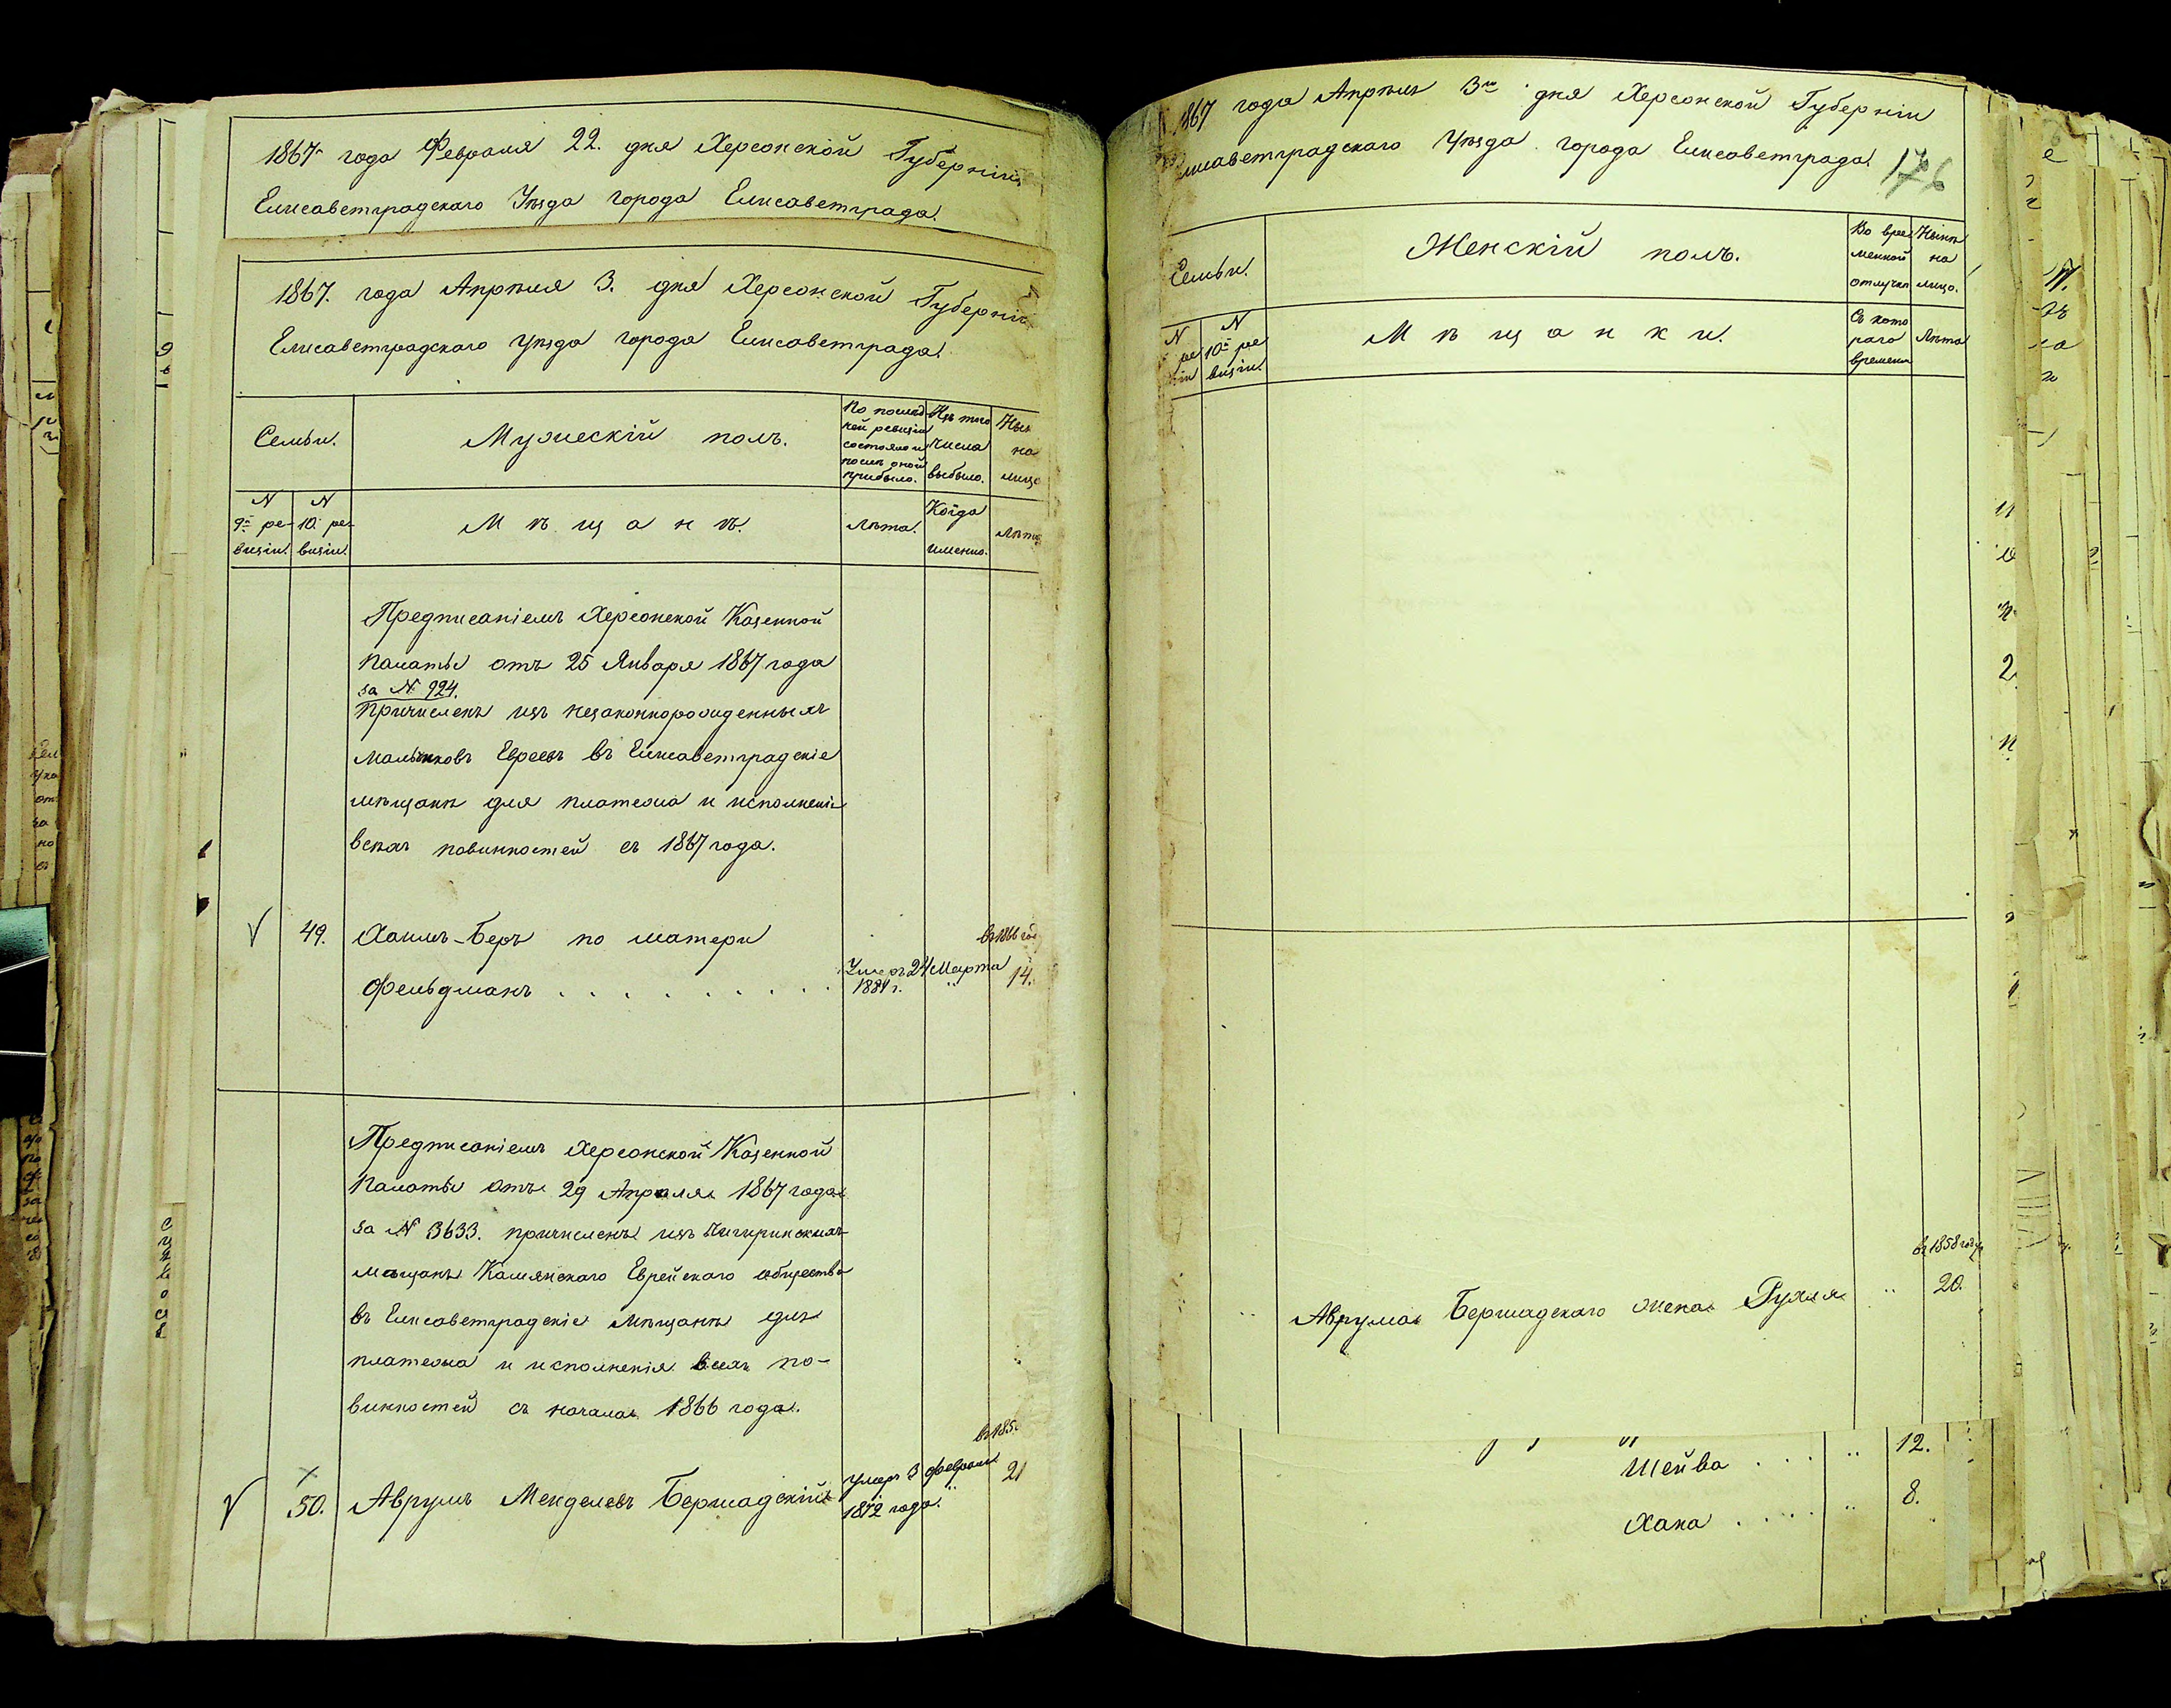 1867 года Февраля 22. дня Херсонской Губерніи
Елисаветградскаго Уѣзда города Елисаветграда.
1867. года Апрѣля 3. дня Херсонской Губерніи
Елисаветградскаго уѣзда города Елисаветграда.
Семьи.
Мужескій полъ.
По послѣд
ней ревизіи
состояло и
послѣ оной
прибыло.
Изъ того
числа
выбыло.
Нын
на
лицо
N
9й ре-
визіи.
N
10 ре-
визіи.
Мѣщанѣ.
Лѣта.
Когда
именно.
Лѣта
Предписаніемъ Херсонской Казенной
Палаты отъ 25 Января 1867 года
за № 924.
Причисленъ изъ незаконнорожденныхъ
мальчиковъ Евреевъ въ Елисаветградскіе
мѣщане для платежа и исполненія
всѣхъ повинностей съ 1867 года.
49. Хаимъ-Беръ по матери
въ 1866 год
Фельдманъ . . . . . . . . . Умеръ 24 Марта 14.
1881 г. "
Предписаніемъ Херсонской Казенной
Палаты отъ 29 Апрѣля 1867 года
за № 3633. причисленъ изъ Чигиринскихъ
мѣщанъ Камянскаго Еврейскаго общества
въ Елисаветградскіе Мѣщане для
платежа и исполненія всѣхъ по-
винностей съ начала 1866 года.
въ 185
50. Аврумъ Менделевъ Бершадскій умеръ 3 февраля 21
1872 года. "
1867 года Апрѣля 3го дня Херсонской Губерніи
лисаветградскаго Уѣзда города Елисаветграда.
176
Семьи.
Женскій полъ.
Во вре
менной
отлучкѣ
Нынѣ
на
лицо.
N
ре
зіи
N
10й ре
визіи.
Мѣщанки.
Съ кото
раго
времени
Лѣта
въ 1858 году
" Аврума Бершадскаго жена Рухля " 20.
Шейва . . . " 12.
Хана . . . . " 8.